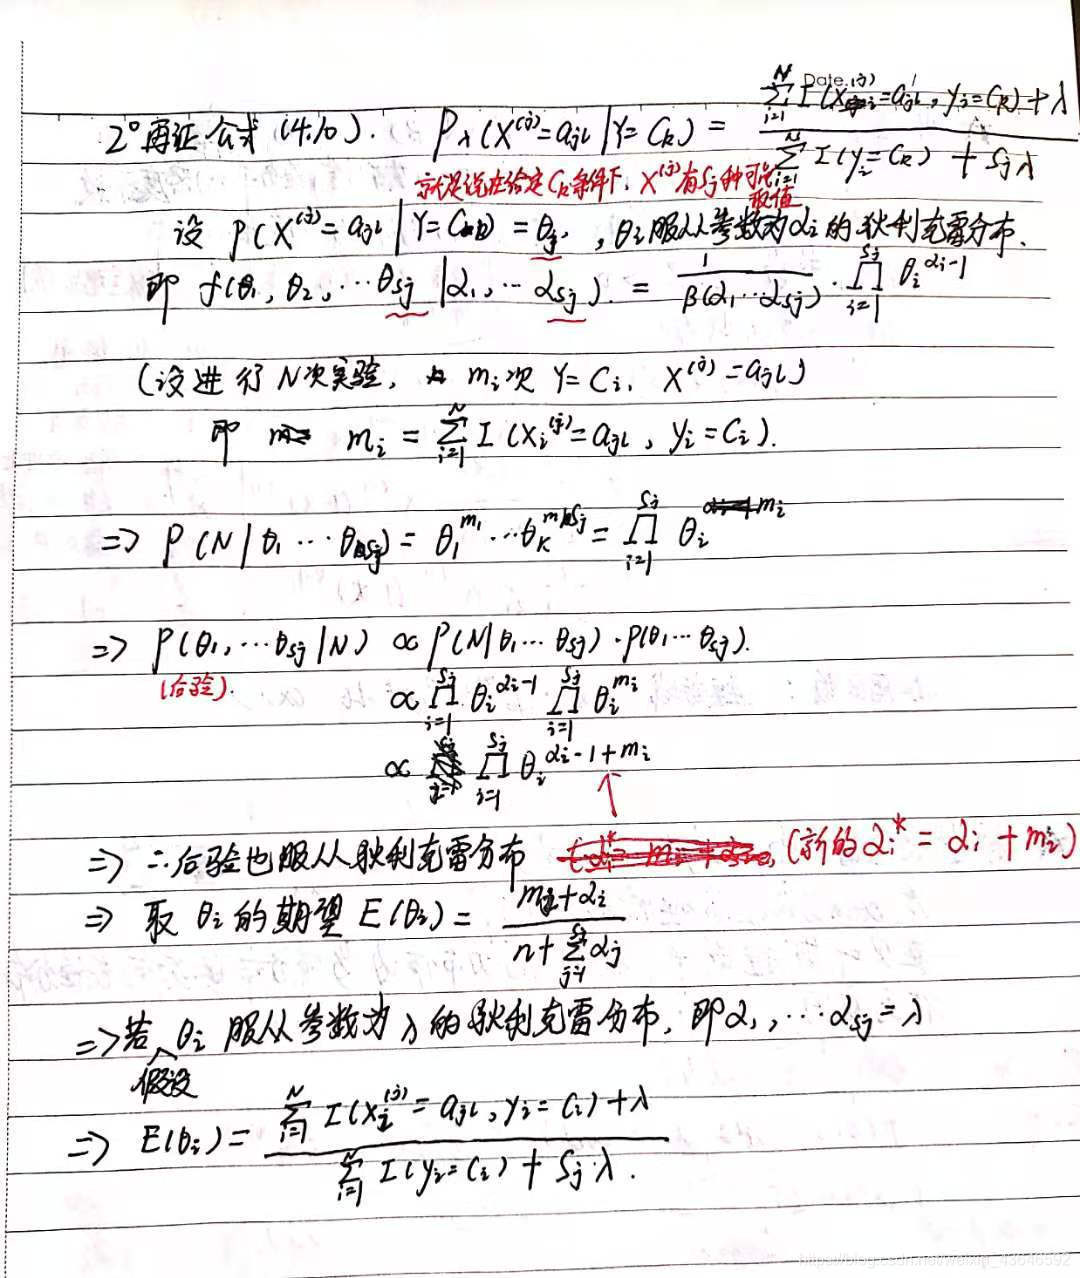 Date.
2° 再证公式(4.10). P_λ(X^(j)=a_jl | Y=C_k) = (∑_{i=1}^{N} I(x_i^(j)=a_jl, y_i=C_k)+λ) / (∑_{i=1}^{N} I(y_i=C_k) + S_jλ)
就是说在给定C_k条件下, X^(j)有S_j种可能取值
设 P(X^(j)=a_jl | Y=C_k) = θ_j, θ_i服从参数为α_i的狄利克雷分布.
即 f(θ_1, θ_2, ⋯θ_Sj | α_1, ⋯ α_Sj). = 1/β(α_1⋯α_Sj) · ∏_{i=1}^{S_j} θ_i^{α_i-1}
(设进行N次实验, m_i次 Y=C_i, X^(j)=a_jl)
即 m_i = ∑_{i=1}^{N} I(x_i^(j)=a_jl, y_i=C_i).
=> P(N | θ_1 ⋯ θ_Sj) = θ_1^{m_1} ⋯θ_K^{m_Sj} = ∏_{i=1}^{S_j} θ_i^{m_i}
=> P(θ_1, ⋯θ_Sj | N) ∝ P(N|θ_1⋯θ_Sj)·P(θ_1⋯θ_Sj).
(后验).
∝ ∏_{i=1}^{S_j} θ_i^{α_i-1} ∏_{i=1}^{S_j} θ_i^{m_i}
∝ ∏_{i=1}^{S_j} θ_i^{α_i-1+m_i}
=> ∴后验也服从狄利克雷分布 (新的α_i^* = α_i + m_i)
=> 取 θ_i 的期望 E(θ_i) = (m_i+α_i) / (n+∑_{j=1}^{S_j} α_j)
=> 若假设 θ_i 服从参数为λ的狄利克雷分布, 即α_1, ⋯ α_Sj=λ
=> E(θ_i) = (∑_{i=1}^{N} I(x_i^(j)=a_jl, y_i=C_i)+λ) / (∑_{i=1}^{N} I(y_i=C_i) + S_j·λ).
https://blog.csdn.net/weixin_43646592